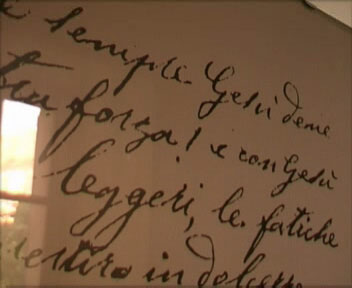 e sempre Gesù deve
tua forza! e con Gesù
leggeri, le fatiche
in dolcezze